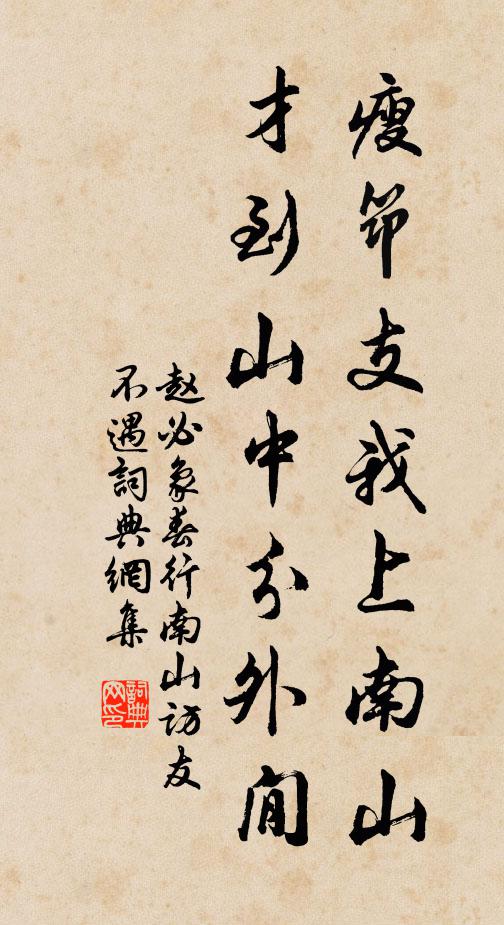 瘦筇支我上南山
才到山中分外閒
趙必象春行南山訪友
不遇詞典網集
詞典网印